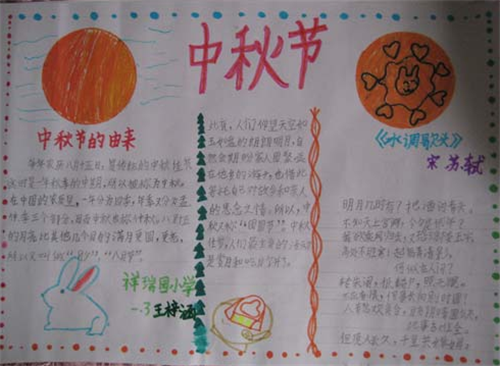 中秋节
中秋节的由来
每年农历八月十五日,是传统的中秋佳节
这时是一年秋季的中期,所以被称为中秋。
在中国的农历里,一年分为四季,每季又分为孟
仲季三个部分,因而中秋也称仲秋。八月十五
的月亮比其他几个月的满月更圆,更亮,
所以又叫做"月夕","八月节"
祥瑞园小学
一.3 王梓涵
此夜,人们仰望天空如
玉如盘的朗朗明月,自
然会期盼家人团聚。远
在他乡的游子,也借此
寄托自己对故乡和亲人
的思念之情。所以,中
秋又称"团圆节"。中秋
佳节,人们最主要的活动
是赏月和吃月饼了。
《水调歌头》
宋 苏轼
明月几时有?把酒问青天。
不知天上宫阙,今夕是何年?
我欲乘风归去,又恐琼楼玉宇,
高处不胜寒!起舞弄清影,
何似在人间?
转朱阁,低绮户,照无眠。
不应有恨,何事长向别时圆?
人有悲欢离合,月有阴晴圆缺,
此事古难全。
但愿人长久,千里共婵娟。